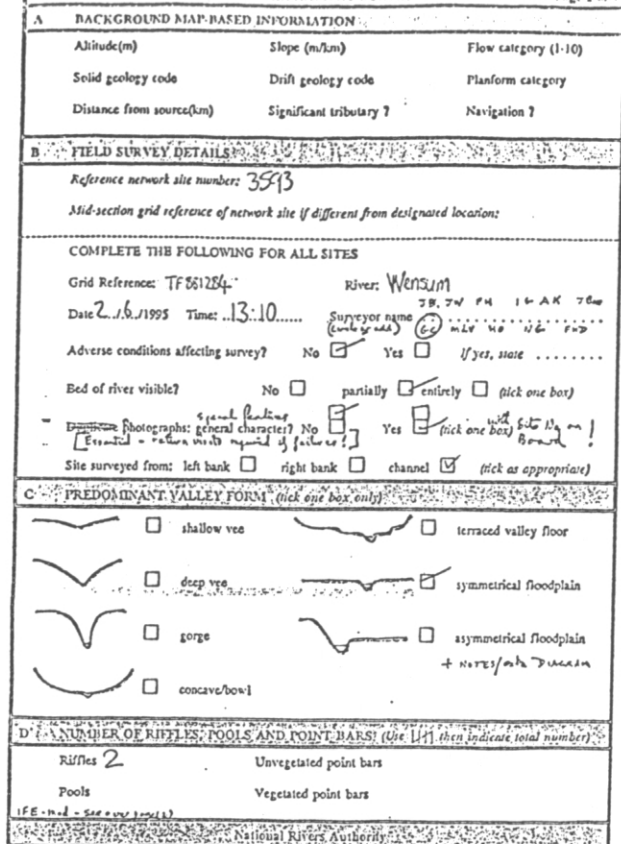 A BACKGROUND MAP-BASED INFORMATION
Altitude(m) Slope (m/km) Flow category (1-10)
Solid geology code Drift geology code Planform category
Distance from source(km) Significant tributary ? Navigation ?
B FIELD SURVEY DETAILS
Reference network site number: 3593
Mid-section grid reference of network site if different from designated location:
COMPLETE THE FOLLOWING FOR ALL SITES
Grid Reference: TF 881284 River: Wensum
JB, JW PH IG AK
Date 2../.6./1995 Time: ..13:10...... Surveyor name
(circle or add) GC MLY HO NG FHD
Adverse conditions affecting survey? No Yes If yes, state ........
Bed of river visible? No partially entirely (tick one box)
special features
photographs: general character? No Yes (tick one box) with Site No on
[Essential - return visits required if failures!] Board !
Site surveyed from: left bank right bank channel (tick as appropriate)
C PREDOMINANT VALLEY FORM (tick one box only)
shallow vee terraced valley floor
deep vee symmetrical floodplain
gorge asymmetrical floodplain
+ NOTES/ DIAGRAM
concave/bowl
D NUMBER OF RIFFLES, POOLS AND POINT BARS (Use then indicate total number)
Riffles 2 Unvegetated point bars
Pools Vegetated point bars
IFE - mod - see over
National Rivers Authority